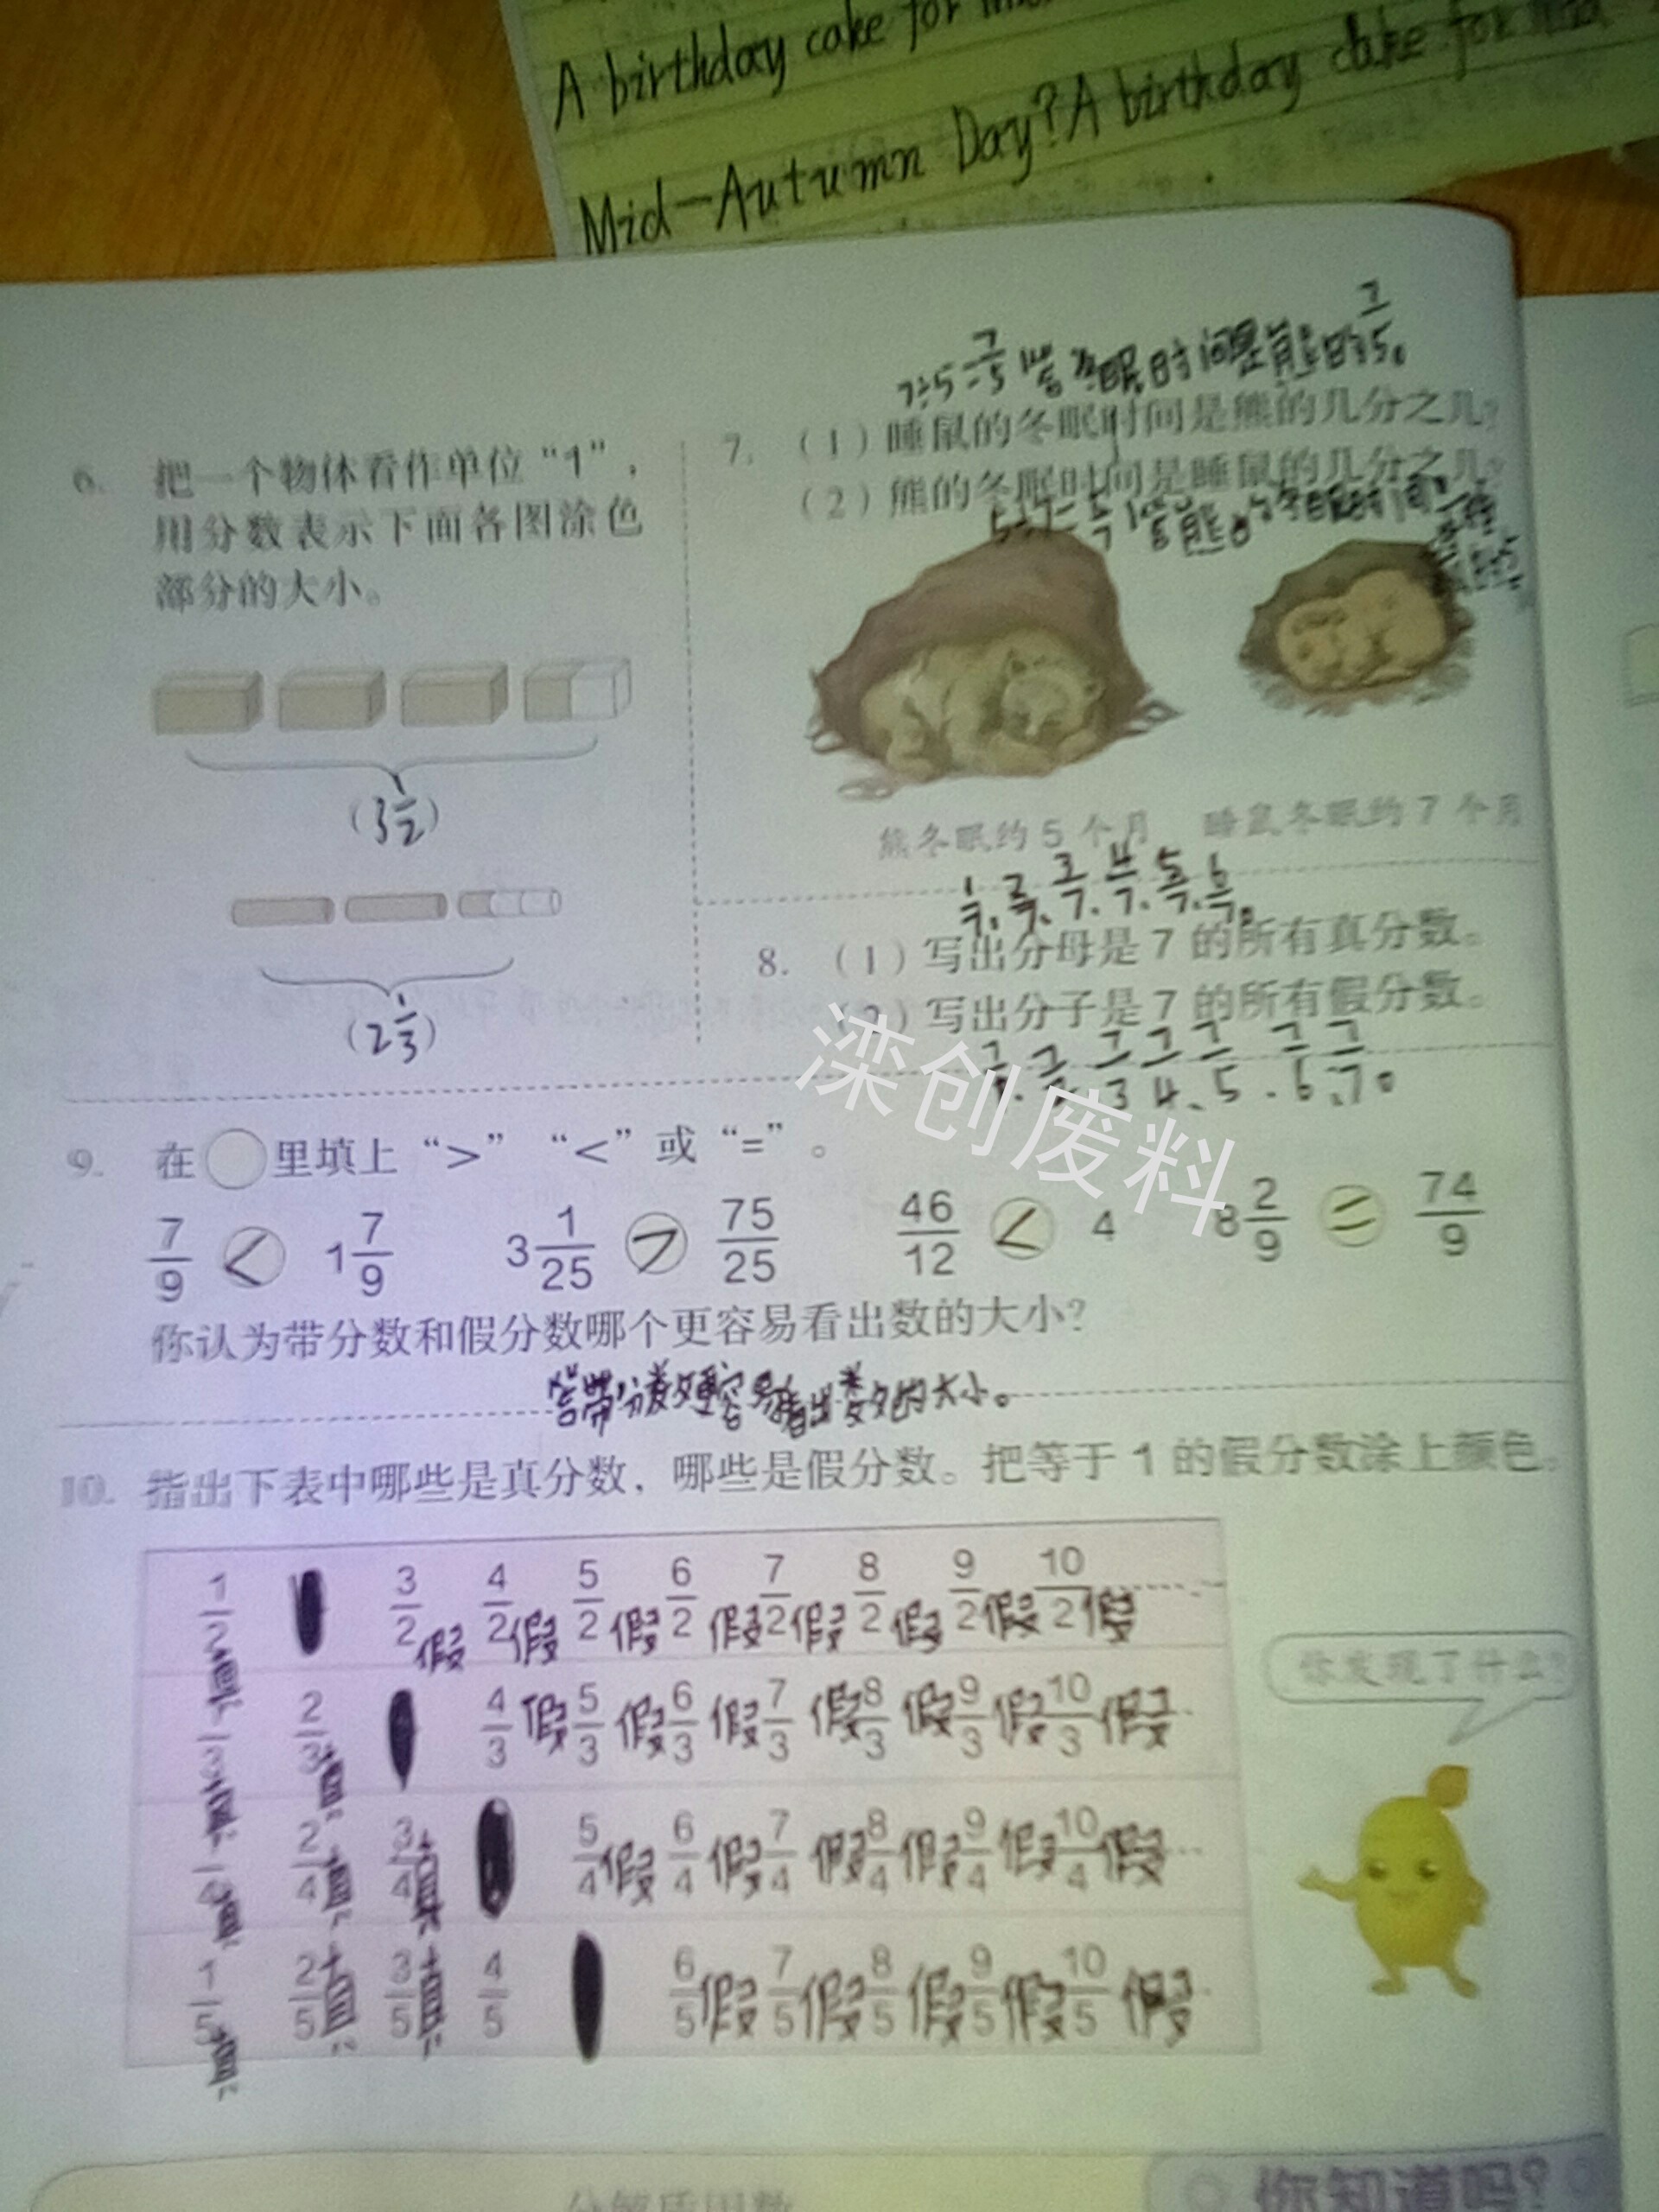 A birthday cake for
Mid-Autumn Day? A birthday cake for
7÷5=7/5 答:冬眠时间是熊的7/5。
6. 把一个物体看作单位“1”,
用分数表示下面各图涂色
部分的大小。
(3 1/2)
(2 1/3)
7. (1)睡鼠的冬眠时间是熊的几分之几?
(2)熊的冬眠时间是睡鼠的几分之几?
5÷7=5/7 答:熊的冬眠时间
熊冬眠约 5 个月 睡鼠冬眠约 7 个月
1/7、2/7、3/7、4/7、5/7、6/7。
8. (1)写出分母是 7 的所有真分数。
(2)写出分子是 7 的所有假分数。
7/1、7/2、7/3、7/4、7/5、7/6、7/7。
滦创废料
9. 在○里填上“>”“<”或“=”。
7/9 < 1 7/9 3 1/25 > 75/25 46/12 < 4 8 2/9 = 74/9
你认为带分数和假分数哪个更容易看出数的大小?
答:带分数更容易看出数的大小。
10. 指出下表中哪些是真分数,哪些是假分数。把等于 1 的假分数涂上颜色。
1/2真 3/2假 4/2假 5/2假 6/2假 7/2假 8/2假 9/2假 10/2假……
1/3真 2/3真 4/3假 5/3假 6/3假 7/3假 8/3假 9/3假 10/3假…
1/4真 2/4真 3/4真 5/4假 6/4假 7/4假 8/4假 9/4假 10/4假…
1/5真 2/5真 3/5真 4/5 6/5假 7/5假 8/5假 9/5假 10/5假…
你发现了什么?
分解质因数
你知道吗?